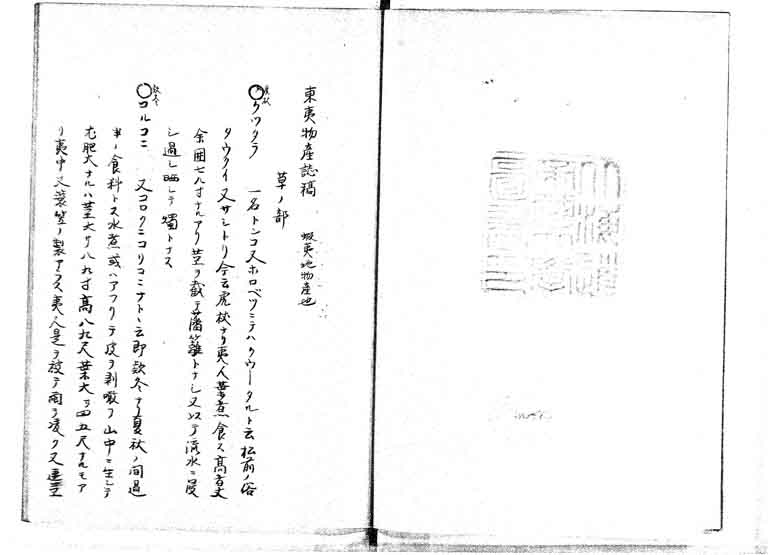 東夷物産誌稿　蝦夷地物産也
草ノ部
虎杖
クツタラ　一名トンコ又ホロベツニテハクウータルト云松前ノ俗
タウクイ又サシトリ今云虎杖ナリ夷人葉煮食ス高者丈
余囲七八寸ナルアリ茎ヲ截テ藩籬トナシ又以テ流水ニ浸
シ過シ晒シテ燭トナス
款冬
コルコニ　又コロクニコリコニナトト云即款冬ナリ夏秋ノ間過
半ノ食料トス水煮或ハアフリテ皮ヲ剥噉フ山中ニ生シテ
尤肥大ナルハ茎大サ八九寸高八九尺葉大サ四五尺ナルモア
リ夷中又蓑笠ノ製アラス夷人是ヲ被テ雨ヲ凌ク又連茎